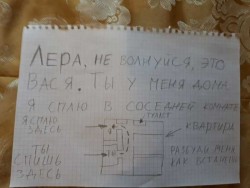 ЛЕРА, НЕ ВОЛНУЙСЯ, ЭТО
ВАСЯ. ТЫ У МЕНЯ ДОМА
Я СПЛЮ В СОСЕДНЕЙ КОМНАТЕ
ТУАЛЕТ
Я СПЛЮ
ЗДЕСЬ
КВАРТИРА
ТЫ
СПИШЬ
ЗДЕСЬ
РАЗБУДИ МЕНЯ
КАК ВСТАНЕШЬ